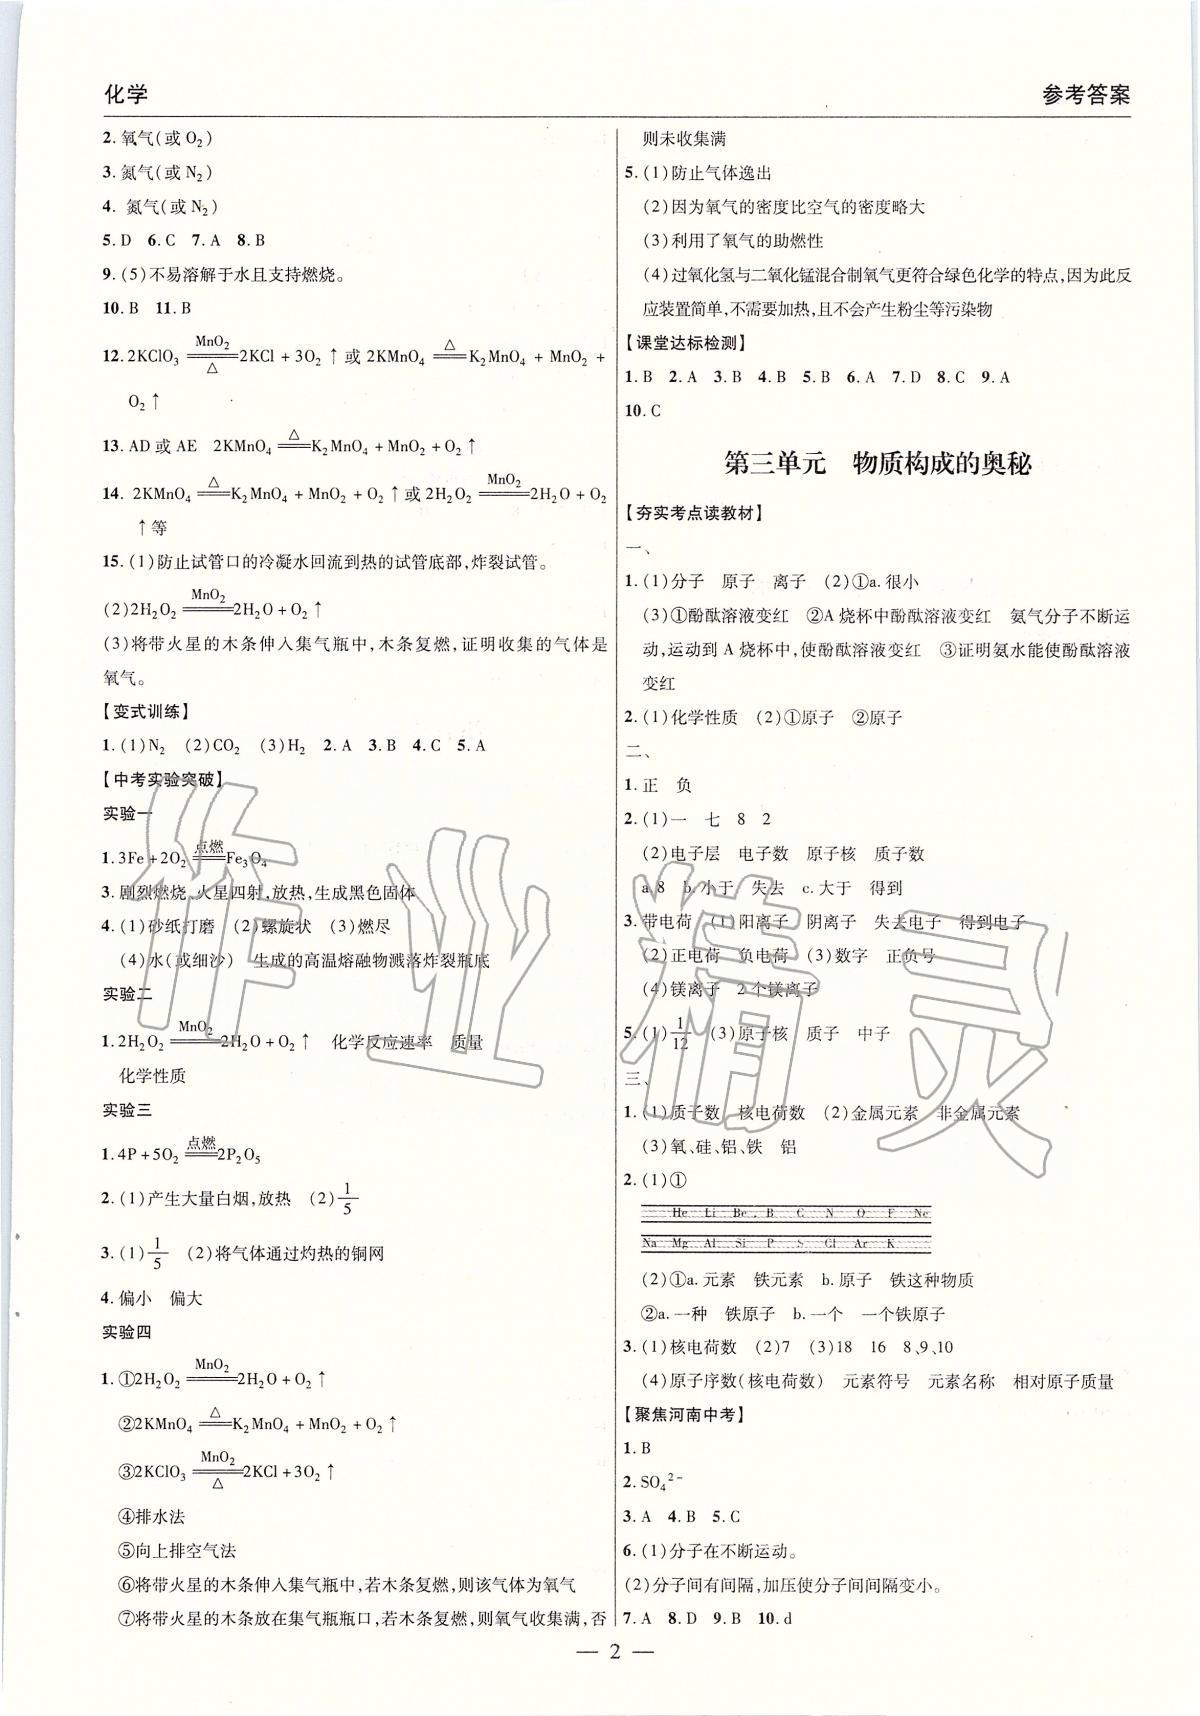 化学
参考答案
2. 氧气(或 O₂)
3. 氮气(或 N₂)
4. 氮气(或 N₂)
5. D 6. C 7. A 8. B
9. (5)不易溶解于水且支持燃烧。
10. B 11. B
12. 2KClO₃ =MnO₂/△= 2KCl + 3O₂↑ 或 2KMnO₄ =△= K₂MnO₄ + MnO₂ +
O₂↑
13. AD 或 AE 2KMnO₄ =△= K₂MnO₄ + MnO₂ + O₂↑
14. 2KMnO₄ =△= K₂MnO₄ + MnO₂ + O₂↑或 2H₂O₂ =MnO₂= 2H₂O + O₂
↑等
15. (1)防止试管口的冷凝水回流到热的试管底部,炸裂试管。
(2)2H₂O₂ =MnO₂= 2H₂O + O₂↑
(3)将带火星的木条伸入集气瓶中,木条复燃,证明收集的气体是
氧气。
【变式训练】
1. (1)N₂ (2)CO₂ (3)H₂ 2. A 3. B 4. C 5. A
【中考实验突破】
实验一
1. 3Fe + 2O₂ =点燃= Fe₃O₄
3. 剧烈燃烧、火星四射,放热,生成黑色固体
4. (1)砂纸打磨 (2)螺旋状 (3)燃尽
(4)水(或细沙) 生成的高温熔融物溅落炸裂瓶底
实验二
1. 2H₂O₂ =MnO₂= 2H₂O + O₂↑ 化学反应速率 质量
化学性质
实验三
1. 4P + 5O₂ =点燃= 2P₂O₅
2. (1)产生大量白烟,放热 (2)1/5
3. (1)1/5 (2)将气体通过灼热的铜网
4. 偏小 偏大
实验四
1. ①2H₂O₂ =MnO₂= 2H₂O + O₂↑
②2KMnO₄ =△= K₂MnO₄ + MnO₂ + O₂↑
③2KClO₃ =MnO₂/△= 2KCl + 3O₂↑
④排水法
⑤向上排空气法
⑥将带火星的木条伸入集气瓶中,若木条复燃,则该气体为氧气
⑦将带火星的木条放在集气瓶瓶口,若木条复燃,则氧气收集满,否
则未收集满
5. (1)防止气体逸出
(2)因为氧气的密度比空气的密度略大
(3)利用了氧气的助燃性
(4)过氧化氢与二氧化锰混合制氧气更符合绿色化学的特点,因为此反
应装置简单,不需要加热,且不会产生粉尘等污染物
【课堂达标检测】
1. B 2. A 3. B 4. B 5. B 6. A 7. D 8. C 9. A
10. C
第三单元 物质构成的奥秘
【夯实考点读教材】
一、
1. (1)分子 原子 离子 (2)①a. 很小
(3)①酚酞溶液变红 ②A 烧杯中酚酞溶液变红 氨气分子不断运
动,运动到 A 烧杯中,使酚酞溶液变红 ③证明氨水能使酚酞溶液
变红
2. (1)化学性质 (2)①原子 ②原子
二、
1. 正 负
2. (1)一 七 8 2
(2)电子层 电子数 原子核 质子数
a. 8 b. 小于 失去 c. 大于 得到
3. 带电荷 (1)阳离子 阴离子 失去电子 得到电子
(2)正电荷 负电荷 (3)数字 正负号
(4)镁离子 2 个镁离子
5. (1)1/12 (3)原子核 质子 中子
三、
1. (1)质子数 核电荷数 (2)金属元素 非金属元素
(3)氧、硅、铝、铁 铝
2. (1)①
He Li Be B C N O F Ne
Na Mg Al Si P S Cl Ar K
(2)①a. 元素 铁元素 b. 原子 铁这种物质
②a. 一种 铁原子 b. 一个 一个铁原子
3. (1)核电荷数 (2)7 (3)18 16 8、9、10
(4)原子序数(核电荷数) 元素符号 元素名称 相对原子质量
【聚焦河南中考】
1. B
2. SO₄²⁻
3. A 4. B 5. C
6. (1)分子在不断运动。
(2)分子间有间隔,加压使分子间间隔变小。
7. A 8. D 9. B 10. d
— 2 —
作业精灵